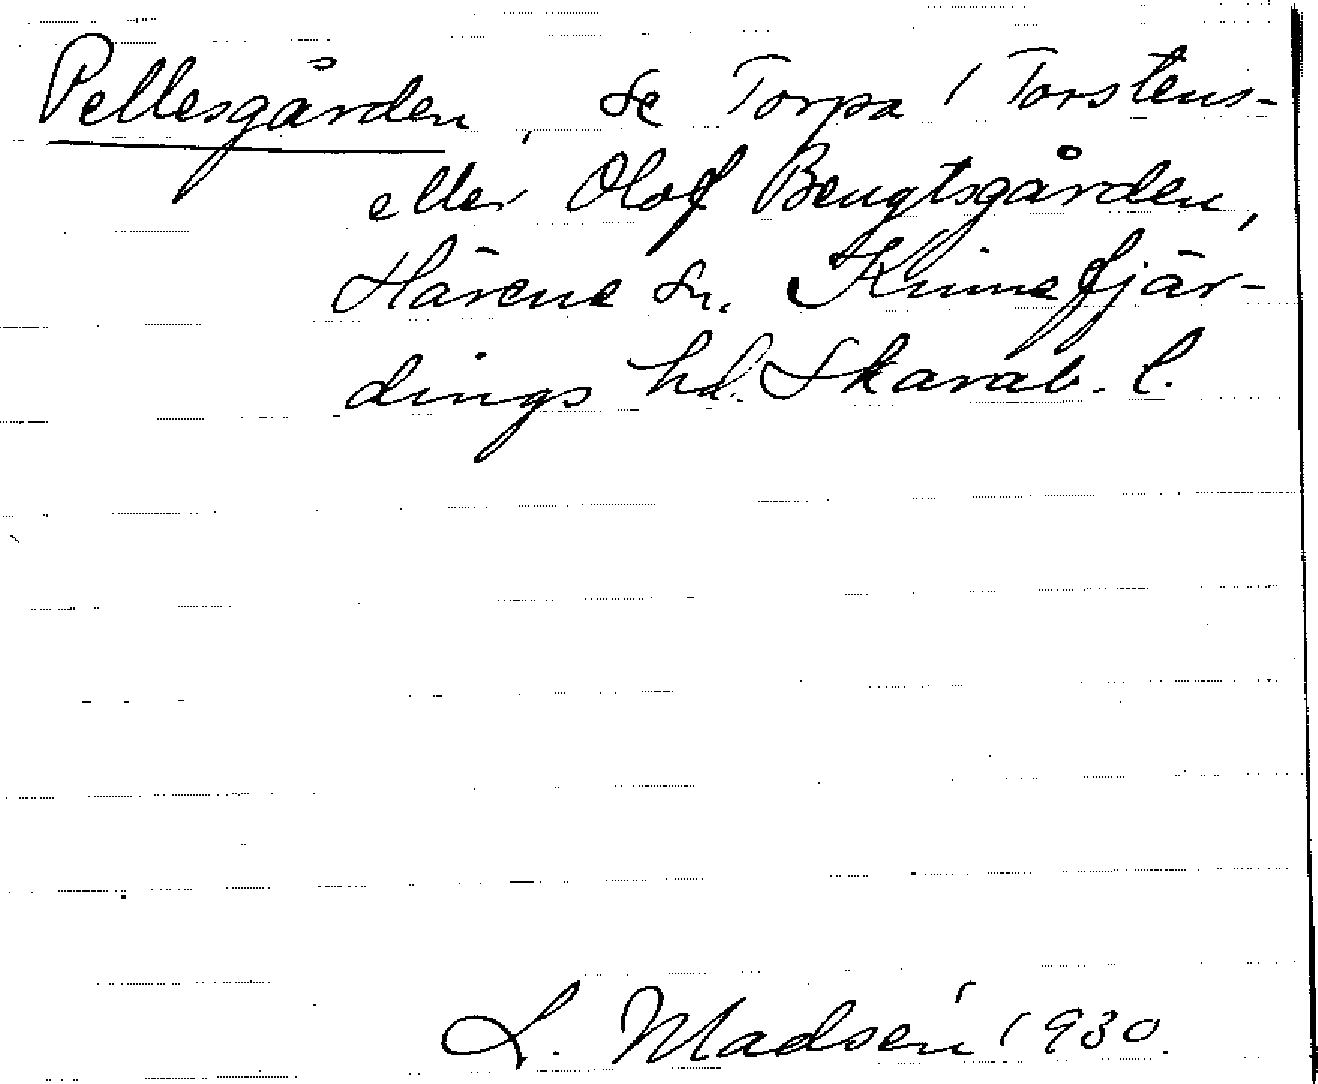 Pellesgården, se Torpa / Torstens-
eller Olof Bengtsgården,
Härene sn. Kinnefjär-
dings hd. Skarab. l.
L. Madsén 1930.